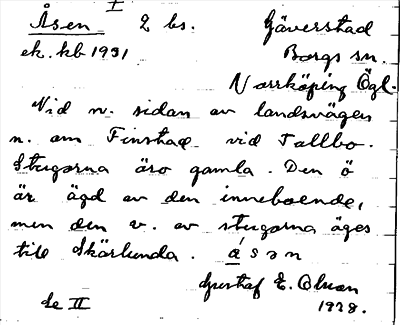 I
Åsen 2 bs. Gäverstad
ek. kb 1931 Borgs sn.
Norrköping Ögl.
Vid n. sidan av landsvägen
n. om Finstad vid Tallbo.
Stugorna äro gamla. Den ö
är ägd av den inneboende,
men den v. av stugorna äges
till Skärlunda. åsən
Gustaf E. Olsson
1928.
se II